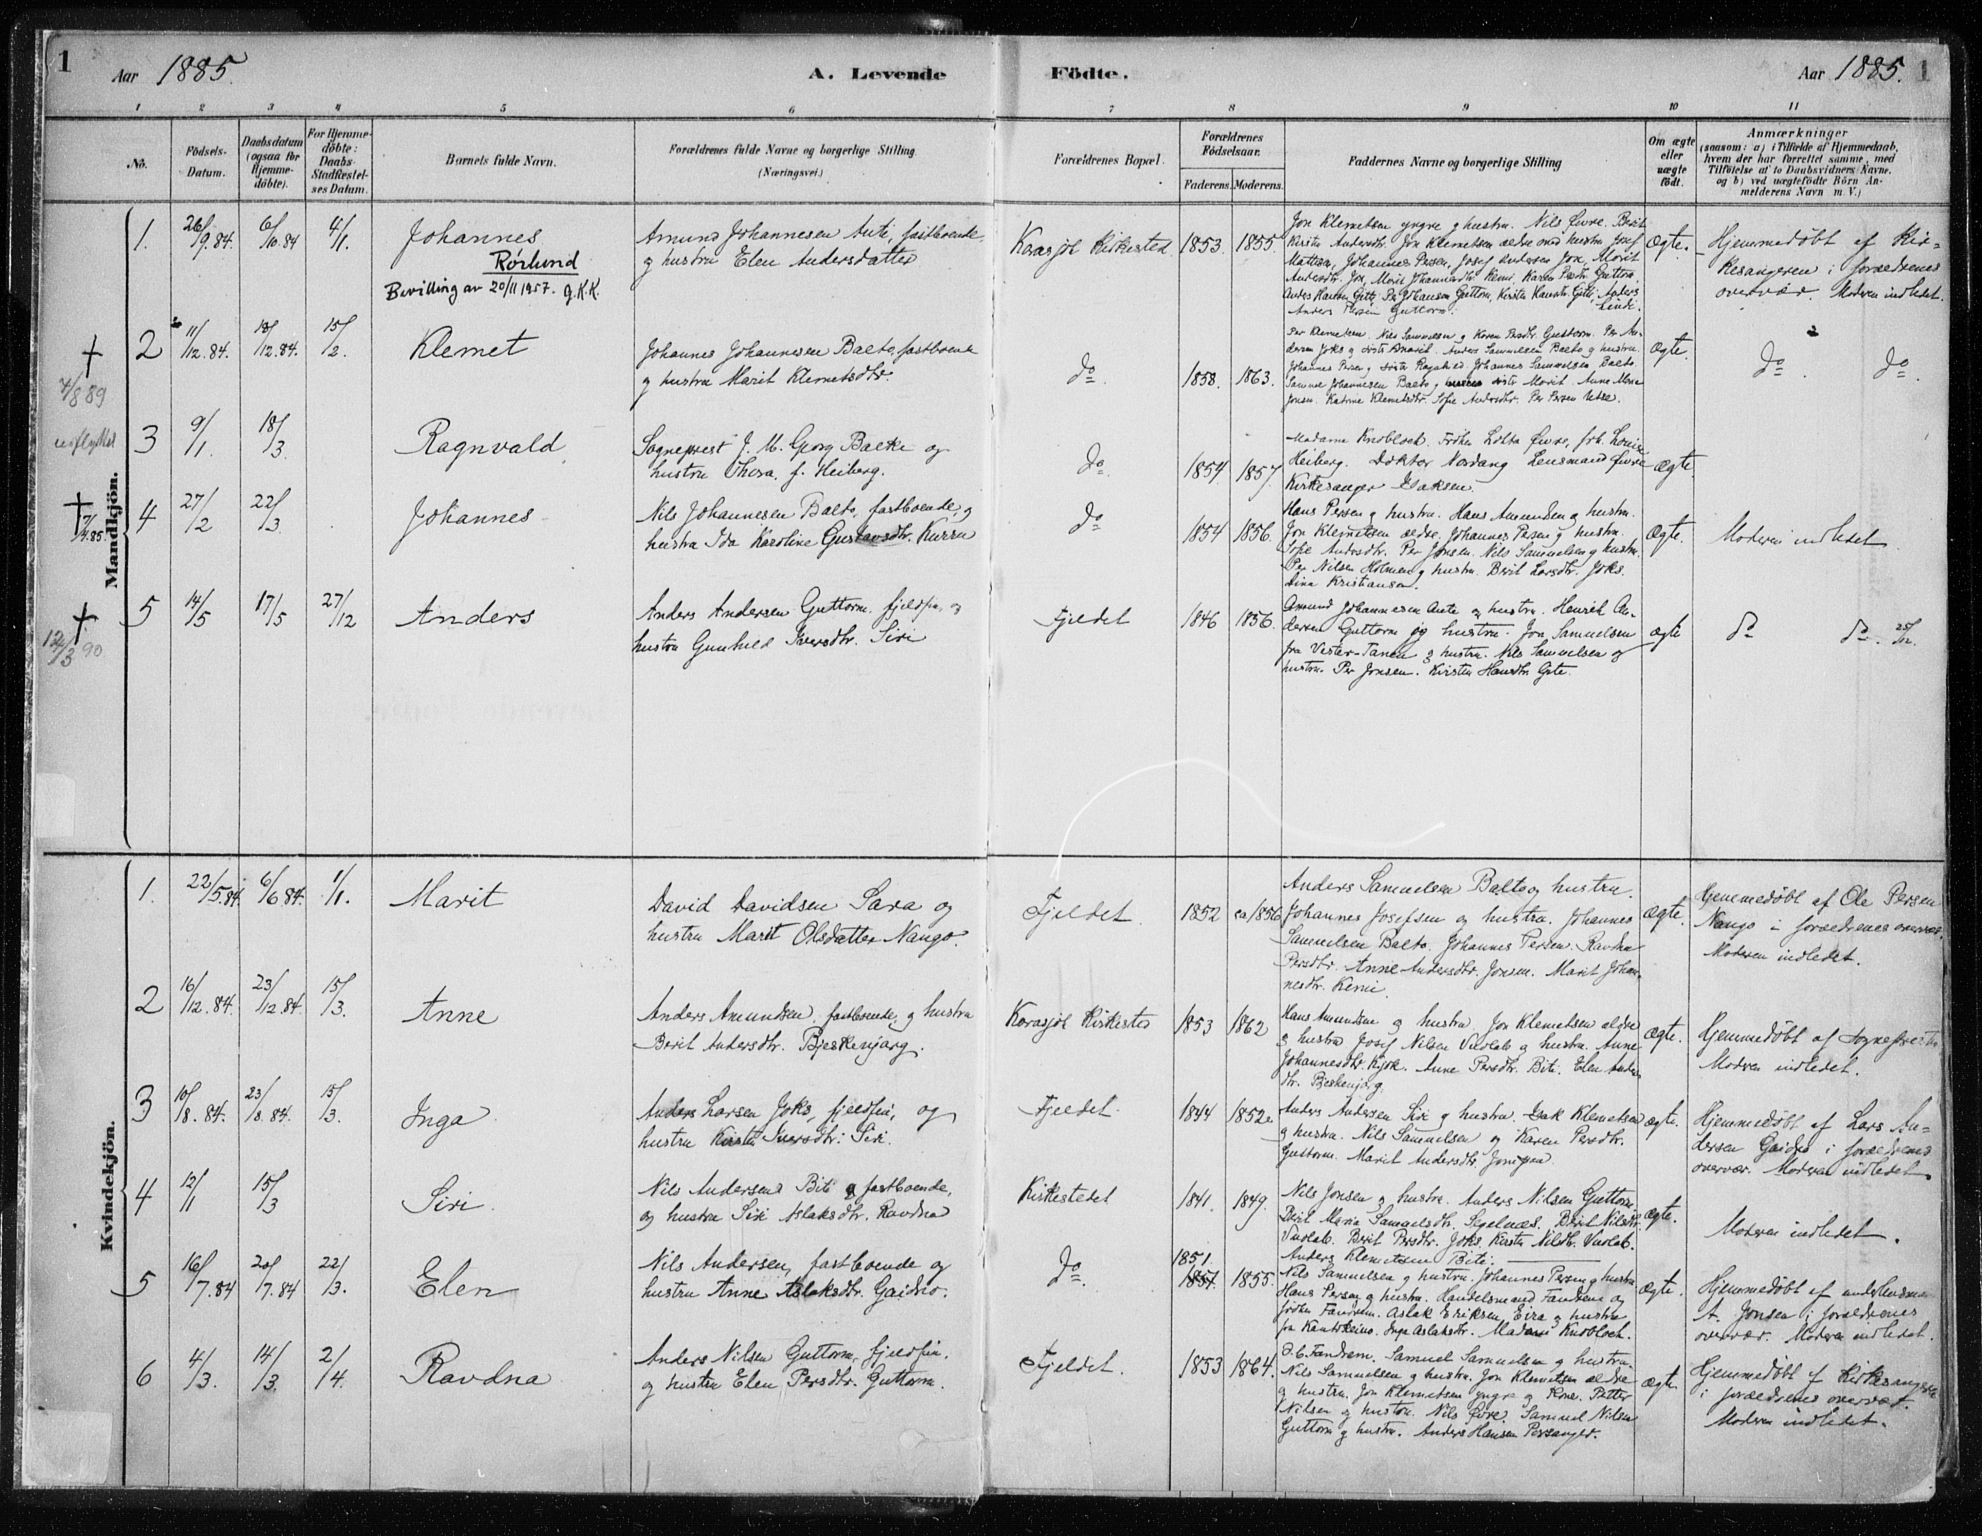 1 Aar 1885. A. Levende Födte. Aar 1885. 1
1 2 3 4 5 6 7 8 9 10 11
No. Födsels-Datum. Daabsdatum (ogsaa for Hjemme-döbte). For Hjemme-döbte: Daabs-Stadfæstel-ses Datum. Barnets fulde Navn. Forældrenes fulde Navne og borgerlige Stilling (Næringsvei.) Forældrenes Bopæl. Forældrenes Födselsaar. Faderens. Moderens. Faddernes Navne og borgerlige Stilling Om ægte eller uægte födt. Anmærkninger (saasom: a) i Tilfælde af Hjemmedaab, hvem der har forrettet samme, med Tilföielse af to Daabsvidners Navne, og b) ved uægtefödte Börn An-melderens Navn m. V.)
Mandkjön.
1. 26/9.84. 6/10 84 4/1. Johannes
Rørlund
Bevilling av 20/11 1957. g.K.K.
Amund Johannesen Aute, fastboende,
og hustru Elen Andersdatter
Karasjok Kirkested 1853 1855
Jon Klemetsen yngre g hustru. Nils Øvre. Berit
Kirsten Andersdtr. Jon Klemetsen ældre med hustru Josef
Mattsen, Johannes Persen, Josef Andersen Jon, Marit
Andersdtr. Jon, Marit Johannesdtr. Kemi, Karen Persdtr. Guttorm
Anders Hansen Gette, Per Johansen Guttorm, Kirsten Hansdtr. Gette, Anders
Anders Persen Guttorm.
Ægte.
Hjemmedøbt af Kir=
kesangeren i forældrenes
overvær. Moderen indledet.
† 4/8 89
2 11/12.84. 18/12.84. 15/2. Klemet
Johannes Johannesen Balto, fastboende
g hustru Marit Klemetsdtr.
do. 1858. 1863.
Per Klemetsen. Nils Samuelsen g Karen Persdtr. Guttorm. Per An-
dersen Joks g Marit. Anders Samuelsen Balto g hustru.
Johannes Persen g Johannes Samuelsen Balto
Samuel Johannesen Balto g Marit. Anne Marie
Jonsen. Katrine Klemetsdtr. Sofie Andersdtr. Per Persen Utse.
Ægte.
do. do.
udflyttet
3 9/1. 18/3. Ragnvald
Sogneprest J. M. Georg Balke og
hustru Thora, f. Heiberg.
do 1854. 1857.
Madame Knobloch. Frøken Lotta Øvre, frk. Louise
Heiberg. Doktor Nordang Lensmand Øvre
Kirkesanger Isaksen.
Ægte
† 7/4.85
4 27/2 22/3. Johannes
Nils Johannesen Balto, fastboende, g
hustru Ida Karoline Gustavsdtr. Kurra
do 1854 1856.
Hans Persen g hustru. Hans Amundsen g hustru.
Jon Klemetsen ældre. Johannes Persen g hustru.
Sofie Andersdtr. Per Jonsen. Nils Samuelsen g hustru.
Per Nilsen Holmen g hustru. Berit Larsdtr. Joks.
Lina Kristiansen.
Ægte.
Moderen indledet.
† 12/3 90
5 14/5 17/5 27/12 Anders
Anders Andersen Guttorm, fjeldfin, og
hustru Gunhild Iversdtr. Siri
Fjeldet 1846 1856.
Amund Johannesen Aute og hustru. Henrik An-
dersen Guttorm og hustru. Jon Samuelsen
fra Vester-Tanen g hustru. Nils Samuelsen og
hustru. Per Jonsen. Kirsten Hansdtr. Gete.
ægte
do do. 28/12.
Kvindekjön.
1. 22/5.84. 6/6 84. 1/1. Marit
David Davidsen Sara og
hustru Marit Olsdatter Nango.
Fjeldet. 1852 ca 1856
Anders Samuelsen Balto og hustru.
Johannes Josefsen og hustru. Johannes
Samuelsen Balto. Johannes Persen. Ravdna
Persdtr. Anne Andersdtr. Jonsen. Marit Johan-
nesdtr. Kemi.
Ægte.
Hjemmedøbt af Ole Persen
Nango i forældrenes overvær.
Moderen indledet.
2 16/12.84. 23/12.84. 15/3. Anne
Anders Amundsen, fastboende, g hustru
Berit Andersdtr. Bjeskenjarg.
Karasjok Kirkested 1853 1862
Hans Amundsen g hustru Jon Klemetsen ældre
g hustru Josef Nilsen Vuolab g hustru. Anne
Johannesdtr. Kjok. Anne Persdtr. Biti. Elen Anders-
dtr. Bjeskenjarg.
Ægte.
Hjemmedøbt af Sognepresten
Moderen indledet.
3 10/8.84. 23/8.84. 15/3. Inga
Anders Larsen Joks, fjeldfin, og
hustru Kirste Iversdtr. Siri.
Fjeldet. 1844 1852
Anders Andersen Siri g hustru. Isak Klemetsen
g hustru. Nils Samuelsen og Karen Persdtr.
Guttorm. Marit Andersdtr.
ægte.
Hjemmedøbt af Lars An=
dersen Gaidno i forældrenes
overvær. Moderen indledet.
4 12/1 15/3 Siri.
Nils Andersen Biti, fastboende,
og hustru Siri Aslaksdtr. Ravdna
Kirkestedet 1841. 1849.
Nils Jonsen g hustru. Anders Nilsen Guttorm.
Berit Maria Samuelsdtr. Segelnæs. Berit Nilsdtr.
Vuolab. Berit Persdtr. Joks. Kirsten Nilsdtr. Vuolab.
Anders Klemetsen Biti.
ægte.
Moderen indledet.
5 16/7.84 20/7.84 22/3. Elen
Nils Andersen, fastboende og
hustru Anne Aslaksdtr. Gaidno.
do. 1851. 1855.
Nils Samuelsen g hustru. Johannes Persen g hustru
Hans Persen g hustru. Handelsmand Fandrem og
frøken Fandrem. Aslak Eriksen Eira g hustru
fra Kautokeino. Inga Aslaksdtr. Madam Knobloch.
ægte.
Hjemmedøbt af underlensmand
A. Jonsen i forældrenes
overvær. Moderen indledet.
6 4/3. 14/3. 2/4. Ravdna
Anders Nilsen Guttorm, fjeldfin,
og hustru Elen Persdtr. Guttorm.
Fjeldet. 1853 1864.
Fandrem. Samuel Samuelsen g hustru.
Nils Samuelsen g hustru. Jon Klemetsen ældre
g hustru. Jon Klemetsen yngre g Kone. Petter
Nilsen g hustru. Nils Øvre. Samuel Nilsen
Guttorm g hustru. Anders Hansen Porsanger.
ægte.
Hjemmedøbt af Kirkesangeren
i forældrenes overvær.
Moderen indledet.